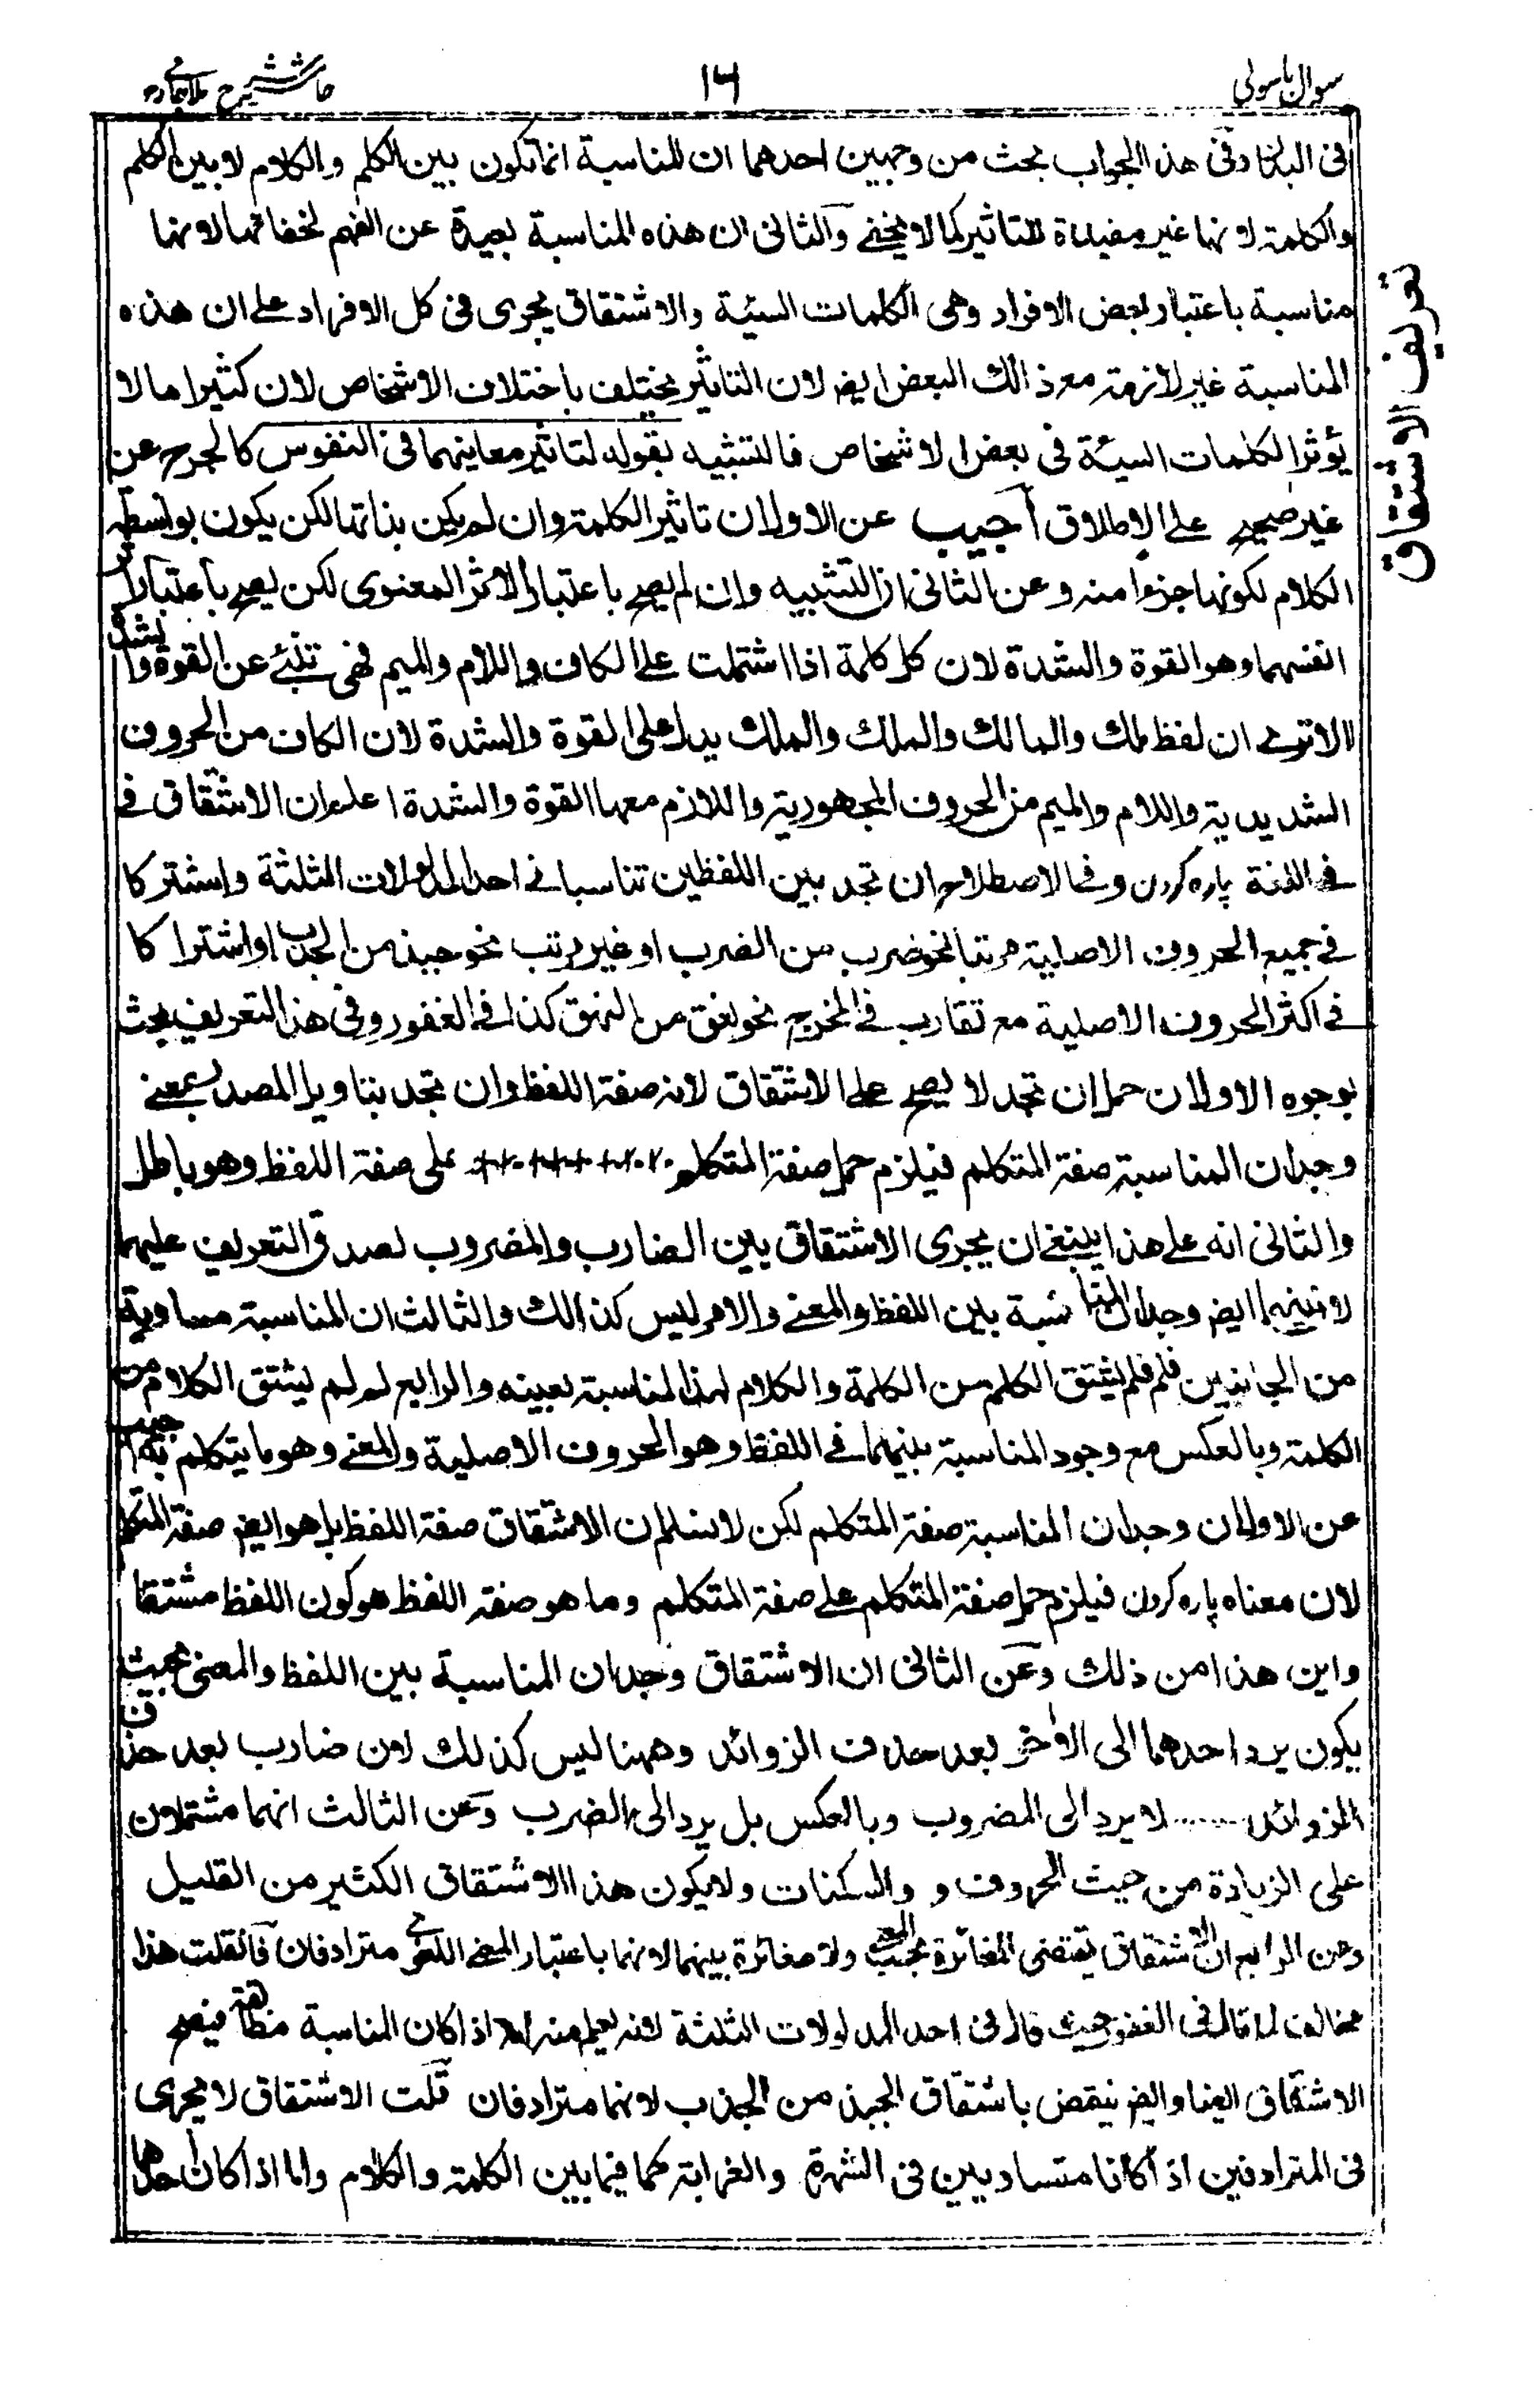 سوال باسولی
۱۶
حاشیه شرح ملا جامی
تعریف الاشتقاق
فی البدن وفی هذا الجواب بحث من وجهین احدهما ان المناسبة انما تکون بین الکلم والکلام لا بین الکلم
والکلمة لانها غیر مفیدة للتاثیر کما لا یخفے والثانی ان هذه المناسبة بعیدة عن الفهم لخفائها لانها
مناسبة باعتبار بعض الافراد وهی الکلمات السیئة والاشتقاق یجری فی کل الافراد علے ان هذه
المناسبة غیر لازمة مع ذالك البعض ایضا لان التاثیر یختلف باختلاف الاشخاص لان کثیرا ما لا
یؤثر الکلمات السیئة فی بعض الاشخاص فالتشبیه بقوله لتاثیر معانیهما فی النفوس کالجرح عن
غیر صحیح علی الاطلاق اجیب عن الاول ان تاثیر الکلمة وان لم یکن بذاتها لکن یکون بواسطة
الکلام لکونها جزءا منه وعن الثانی ان التشبیه وان لم یصح باعتبار الاثر المعنوی لکن یصح باعتبار اثر
انفسهما وهو القوة والشدة لان کل کلمة اذا اشتملت علے الکاف واللام والمیم فهی تنبئے عن القوة والشدة
الا تریے ان لفظ ملك والمالك والملك والملك یدل علی القوة والشدة لان الکاف من الحروف
الشدیدیة واللام والمیم من الحروف المجهوریة واللازم معها القوة والشدة اعلم ان الاشتقاق فے
فی اللغة پاره کردن وفی الاصطلاح ان تجد بین اللفظین تناسبا فے احد المدلولات الثلثة واشترکا
فے جمیع الحروف الاصلیة مرتبا نحو ضرب من الضرب او غیر مرتب نحو جبذ من الجذب او اشتراکا
فے اکثر الحروف الاصلیة مع تقارب فے المخرج نحو نعق من النهق کذا فے الغفور وفی هذا التعریف بحث
بوجوه الاول ان حمل ان تجد لا یصح علے الاشتقاق لانه صفة اللفظ وان تجد بتاویل المصدر بمعنے
وجدان المناسبة صفة المتکلم فیلزم حمل صفة المتکلم علی صفة اللفظ وهو باطل
والثانی انه علے هذا ینبغے ان یجری الاشتقاق بین الضارب والمضروب لصدق التعریف علیهما
لان بینهما ایضا وجدان المناسبة بین اللفظ والمعنے والامر لیس کذالك والثالث ان المناسبة مساویة
من الجانبین فلم فلم یشتق الکلم من الکلمة والکلام لهذا المناسبة بعینه والرابع لم لم یشتق الکلام من
الکلمة وبالعکس مع وجود المناسبة بینهما فے اللفظ وهو الحروف الاصلیة والمعنے وهو ما یتکلم به اجیب
عن الاول ان وجدان المناسبة صفة المتکلم لکن لا نسلم ان الاشتقاق صفة اللفظ بل هو ایضا صفة المتکلم
لان معناه پاره کردن فیلزم حمل صفة المتکلم علے صفة المتکلم وما هو صفة اللفظ هو کون اللفظ مشتقا
واین هذا من ذلك وعن الثانی ان الاشتقاق وجدان المناسبة بین اللفظ والمعنی بحیث
یکون یرد احدهما الی الاخر بعد حذف الزوائد وههنا لیس کذلك لان ضارب بعد حذف
الزوائد ...... لا یرد الی المضروب وبالعکس بل یرد الی الضرب وعن الثالث انهما مشتملان
علی الزیادة من حیث الحروف و والسکنات ولا یکون هذا الاشتقاق الکثیر من القلیل
وعن الرابع ان الاشتقاق یقتضی المغائرة بحسب المعنے ولا مغائرة بینهما لانهما باعتبار المعنے اللغوی مترادفان فان قلت هذا
مخالف لما قال فی الغفور حیث قال فی احد المدلولات الثلثة لانه یعلم منه اذا کان المناسبة مطابقة فیصح
الاشتقاق ایضا وایضا ینقض باشتقاق الجبذ من الجذب لانهما مترادفان قلت الاشتقاق لا یجری
فی المترادفین اذا کانا متساویین فی الشهرة والغرابة کما فیما بین الکلمة والکلام واما اذا کان احدهما